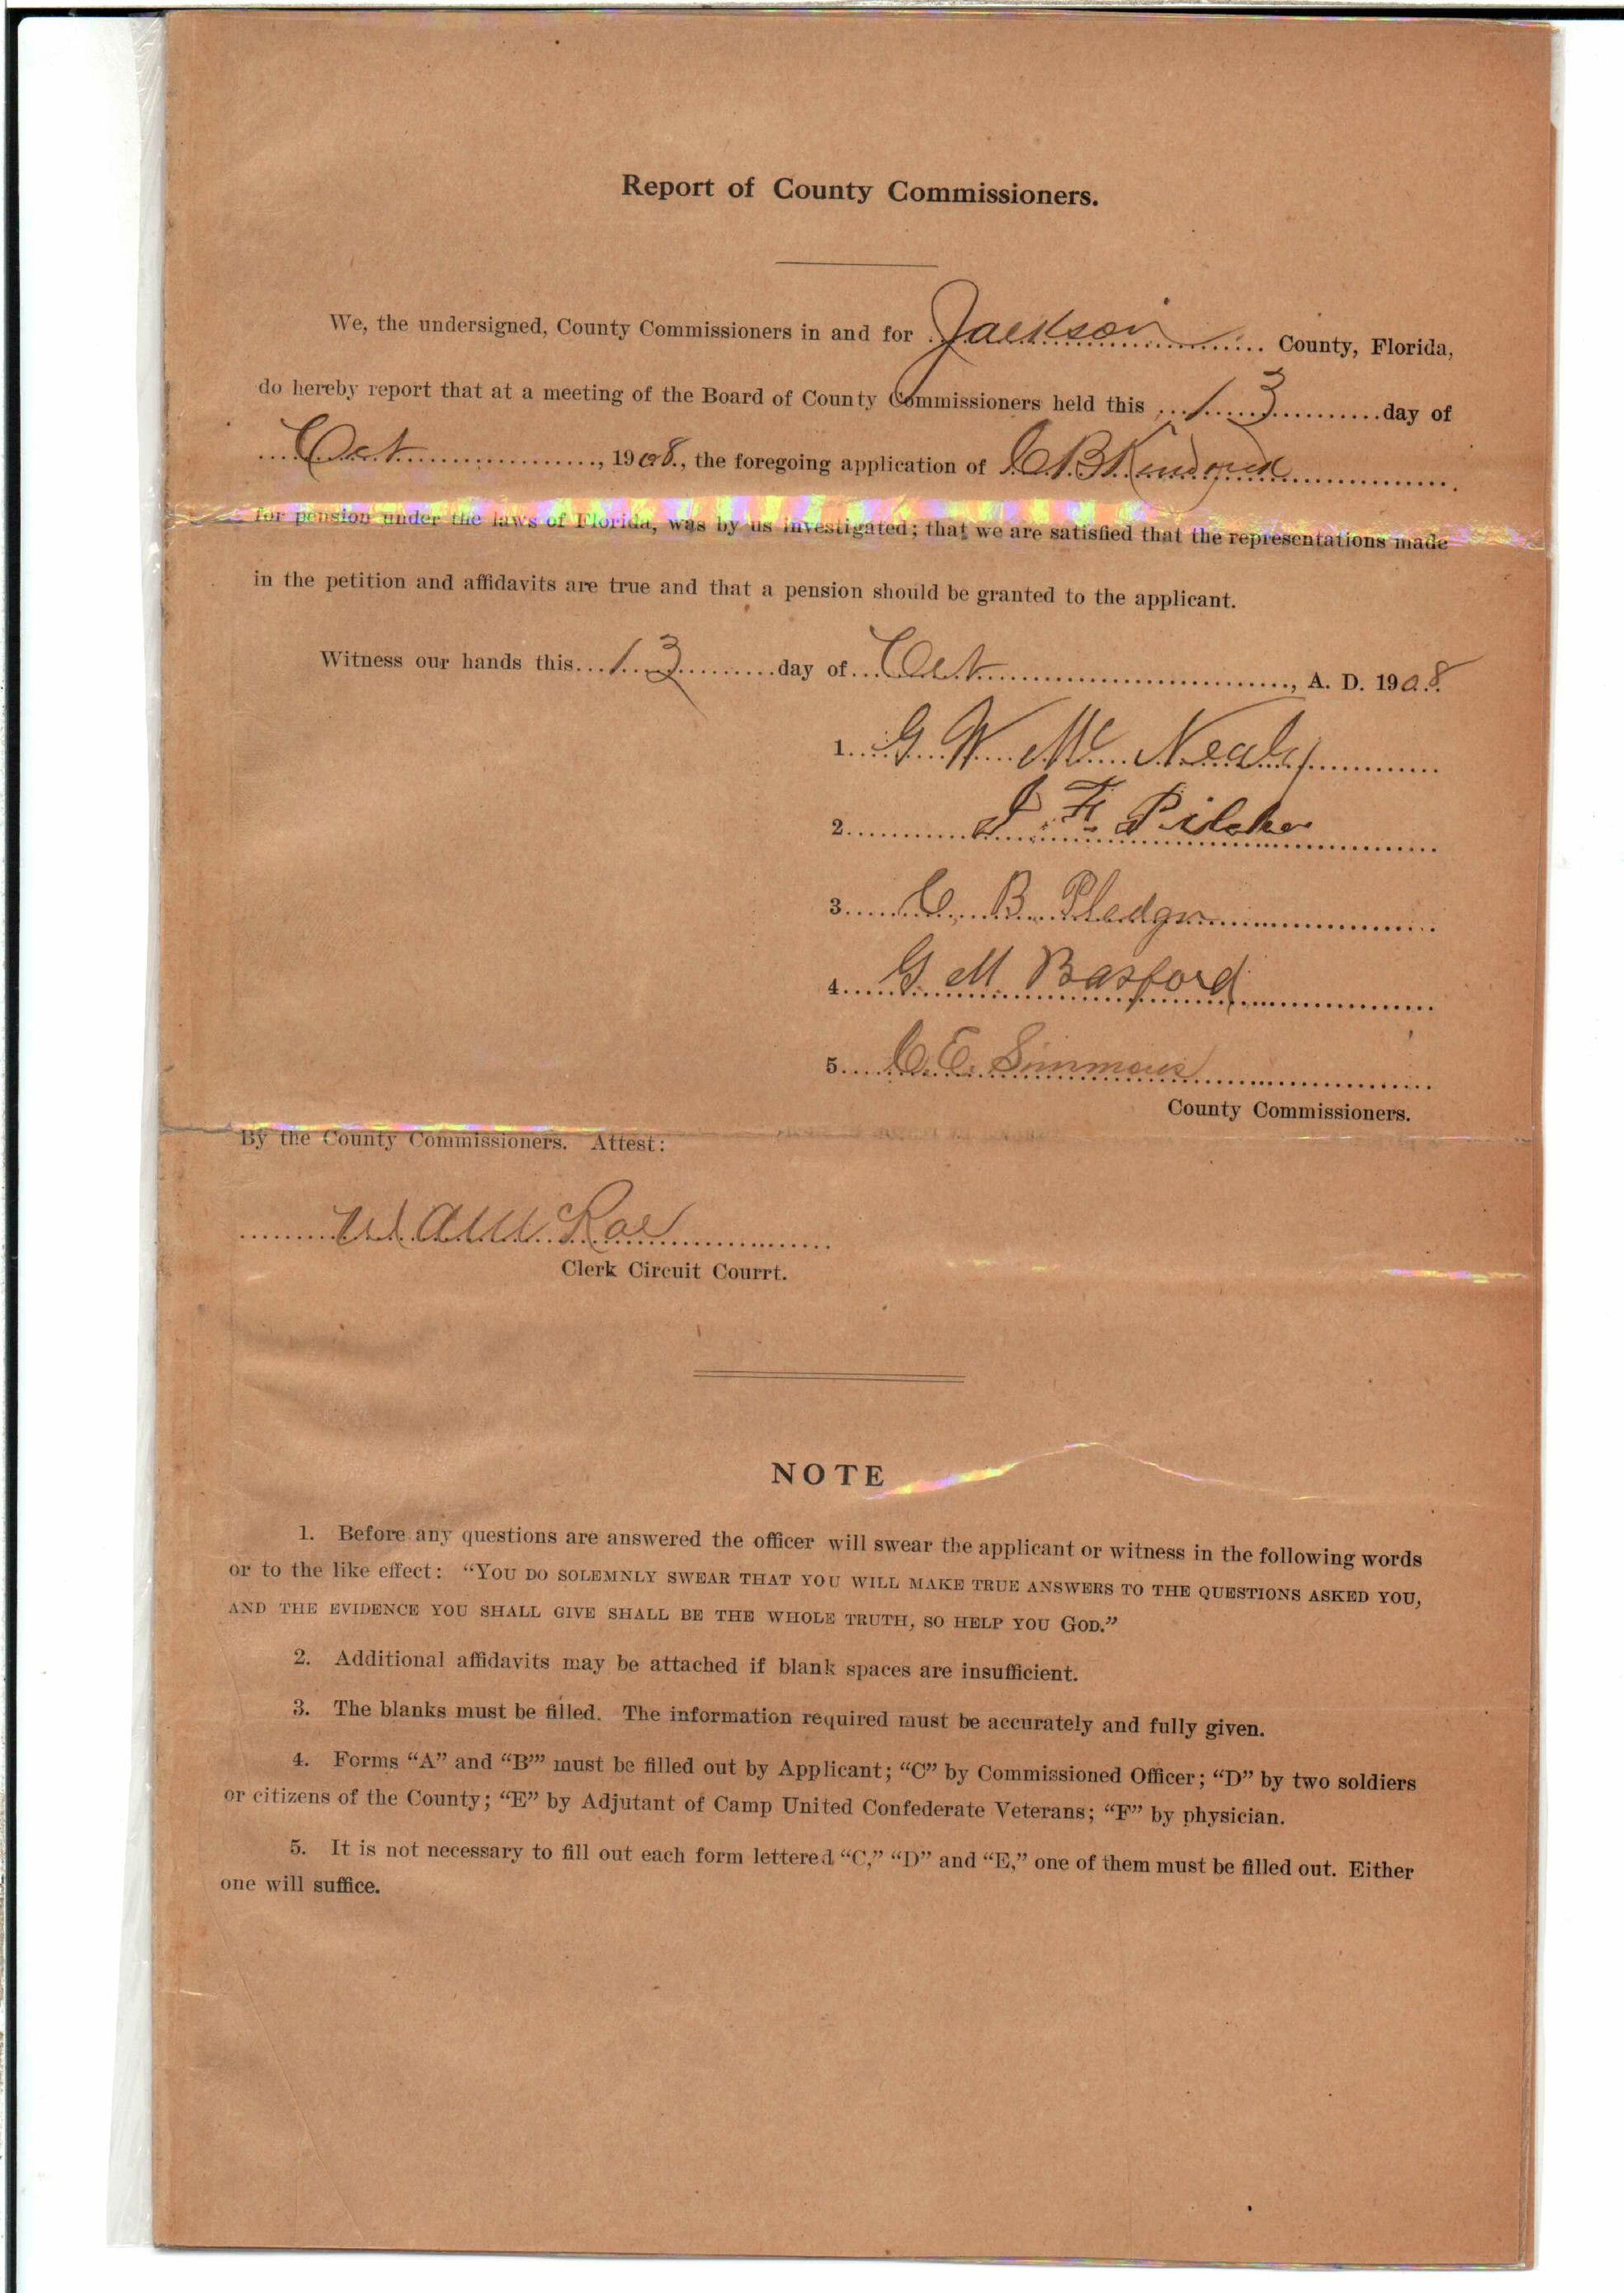 Report of County Commissioners.
We, the undersigned, County Commissioners in and for Jackson County, Florida,
do hereby report that at a meeting of the Board of County Commissioners held this 13 day of
Oct, 1908, the foregoing application of C B
for pension under the laws of Florida, was by us investigated; that we are satisfied that the representations made
in the petition and affidavits are true and that a pension should be granted to the applicant.
Witness our hands this 13 day of Oct, A. D. 1908.
1. G. W. Mc Nealy
2. J. F. Pilcher
3. C. B. Pledger
4. G. M. Basford
5. C. E. Simmons
County Commissioners.
By the County Commissioners. Attest:
W
Clerk Circuit Courrt.
NOTE
1. Before any questions are answered the officer will swear the applicant or witness in the following words
or to the like effect: “YOU DO SOLEMNLY SWEAR THAT YOU WILL MAKE TRUE ANSWERS TO THE QUESTIONS ASKED YOU,
AND THE EVIDENCE YOU SHALL GIVE SHALL BE THE WHOLE TRUTH, SO HELP YOU GOD.”
2. Additional affidavits may be attached if blank spaces are insufficient.
3. The blanks must be filled. The information required must be accurately and fully given.
4. Forms “A” and “B”’ must be filled out by Applicant; “C” by Commissioned Officer; “D” by two soldiers
or citizens of the County; “E” by Adjutant of Camp United Confederate Veterans; “F” by physician.
5. It is not necessary to fill out each form lettered “C,” “D” and “E,” one of them must be filled out. Either
one will suffice.